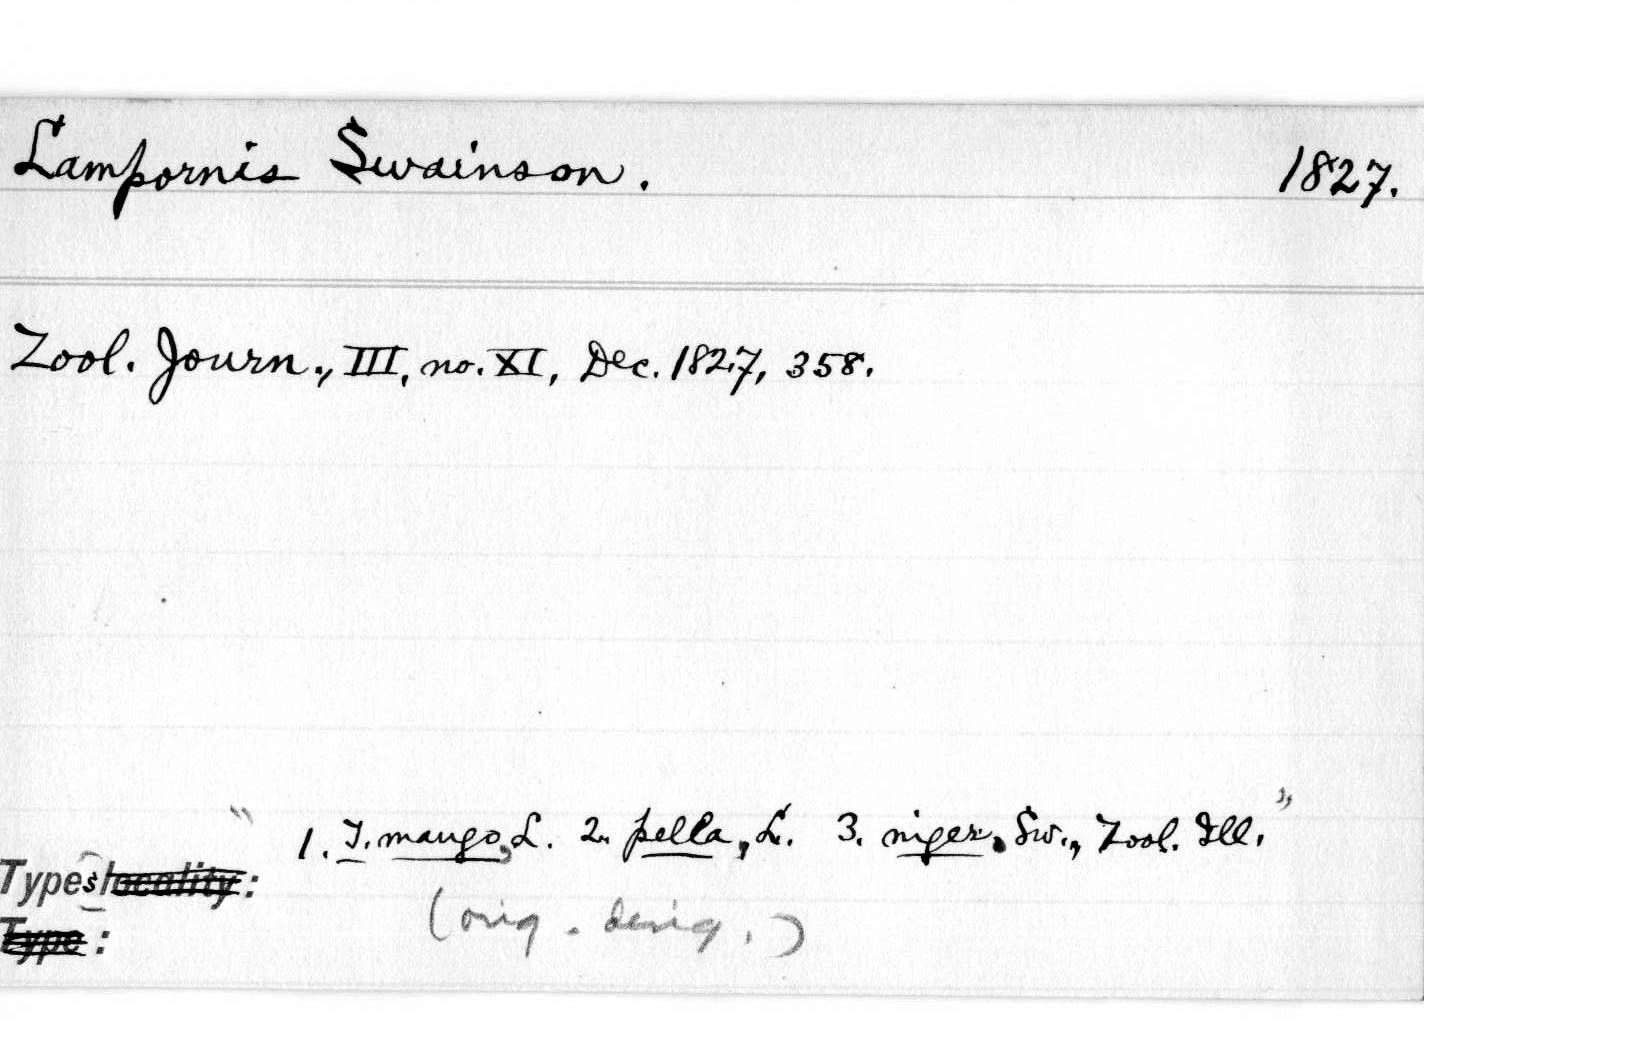 Lampornis Swainson. 1827.
Zool. Journ., III, no. XI, Dec. 1827, 358.
" 1. T. mango, L. 2. pella, L. 3. niger, Sw., Zool. Ill. "
Types locality:
(orig. desig.)
Type: